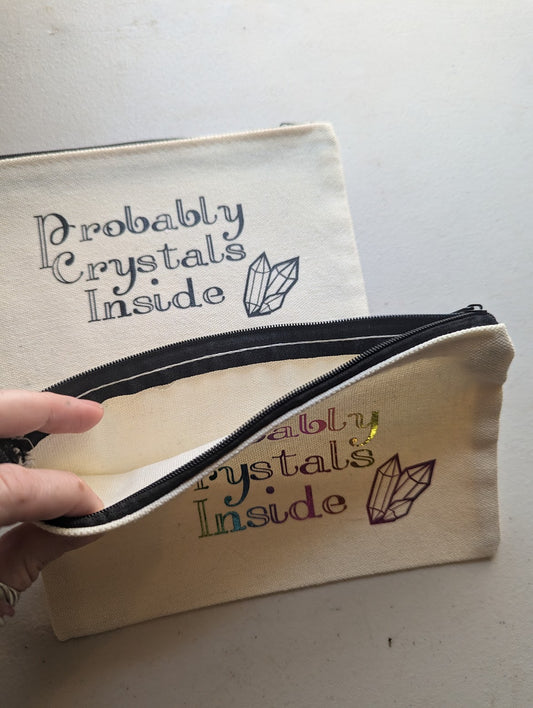 Probably
Crystals
Inside
ably
rystals
Inside